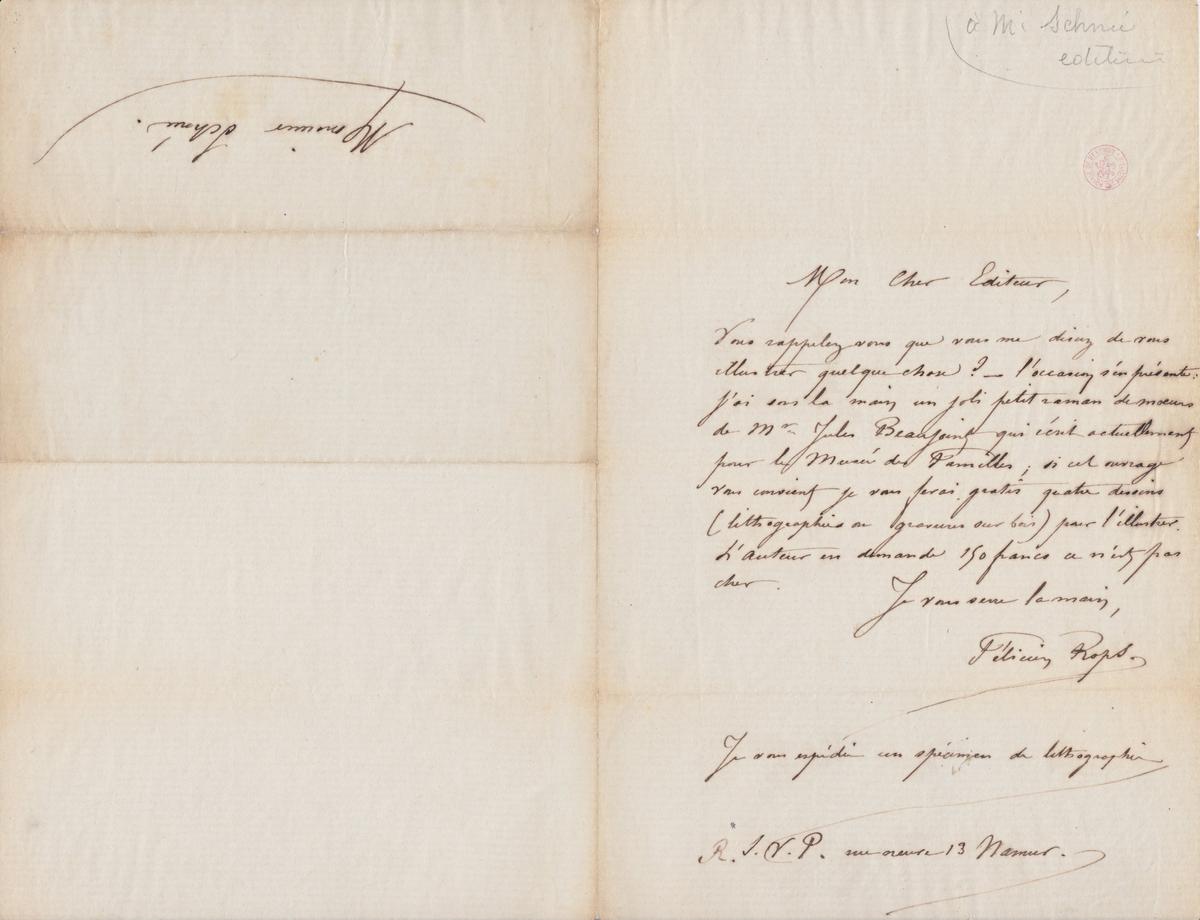 à Mr Schnée
editeur
Monsieur Schnée.
Mon Cher Editeur,
Vous rappelez vous que vous me disiez de vous
illustrer quelque chose ? — l'occasion s'en présente :
j'ai sous la main un joli petit roman de mœurs
de Mr Jules Beaujoint qui écrit actuellement
pour le Musée des Familles ; si cet ouvrage
vous convient je vous ferai gratis quatre dessins
(lithographies ou gravures sur bois) pour l'illustrer.
L'auteur en demande 150 francs ce n'est pas
cher.
Je vous serre la main,
Félicien Rops.
Je vous expédie un spécimen de lithographie
R.S.V.P. rue neuve 13 Namur.